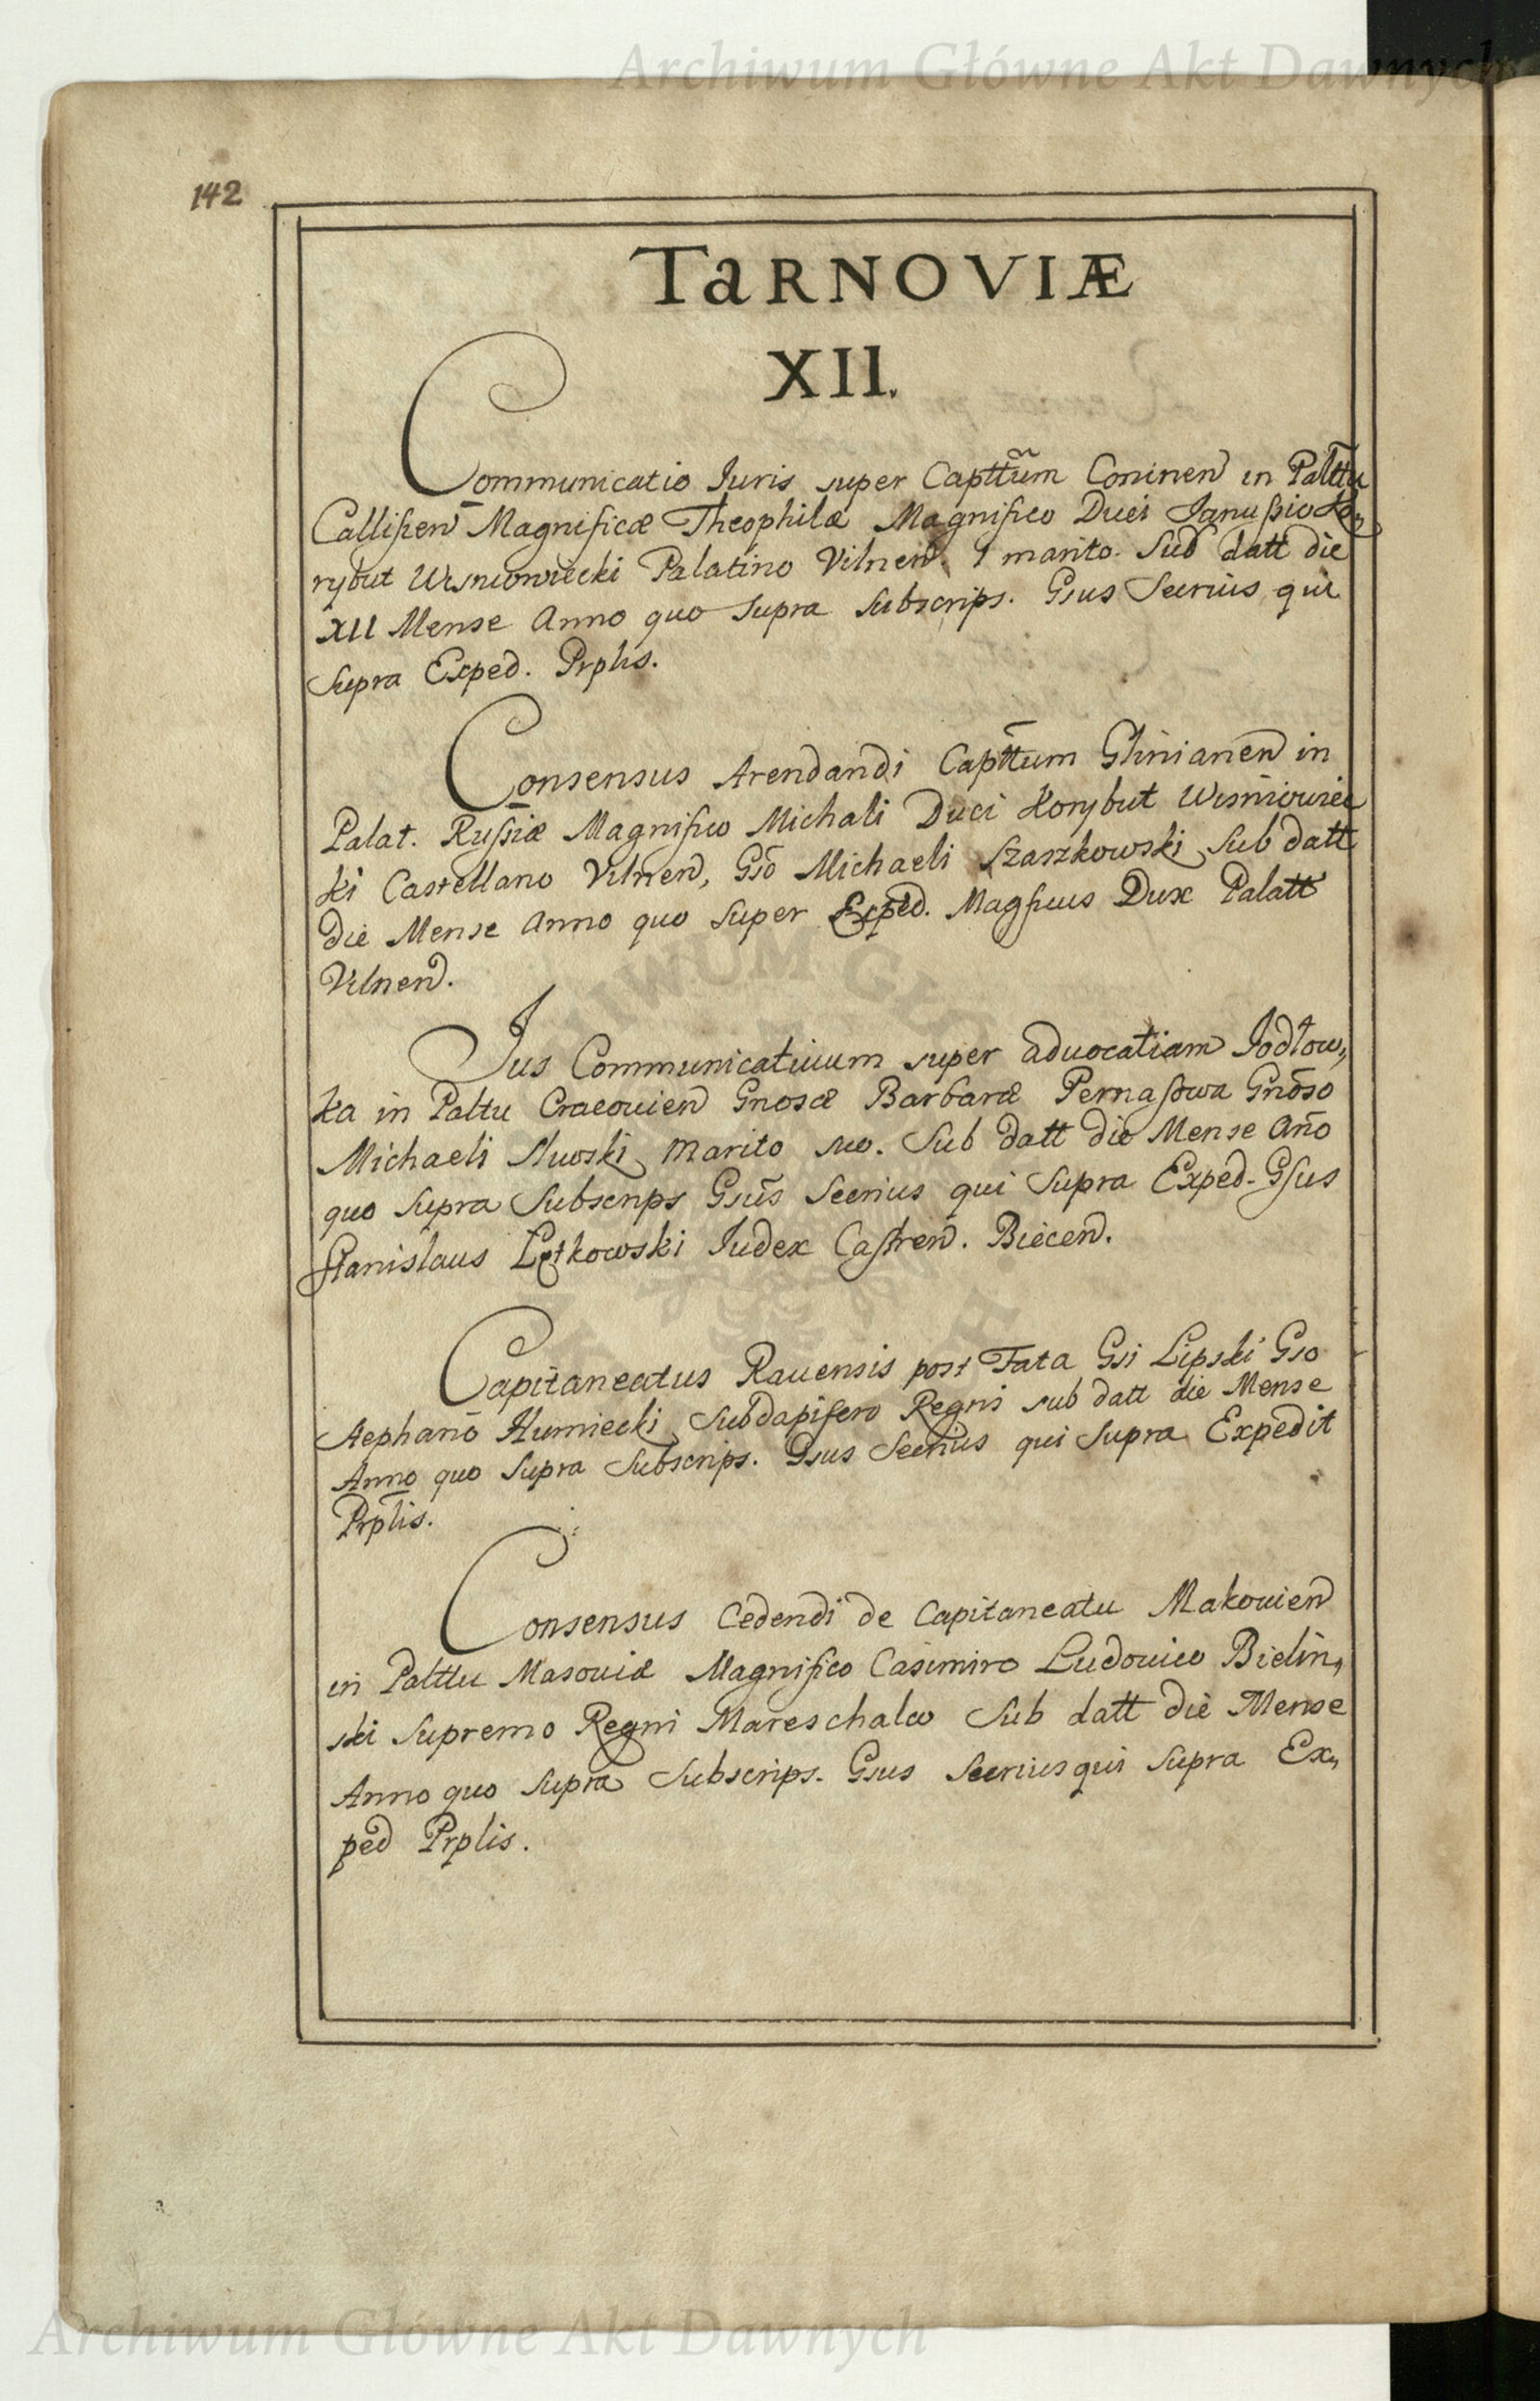 Archiwum Główne Akt Dawnych
142
TaRNOVIÆ
XII.
Communicatio Iuris super Capttum Coninen in Palttu
Callissen Magnificæ Theophilæ Magnifico Duci Janussio Ko,
rybut Wisniowiecki Palatino Vilnen. marito. Sub datt die
XII Mense Anno quo supra Subscrips. Gsus Secrius qui
supra Exped. Prplis.
Consensus Arendandi Capttum Glinianen in
Palat. Russiæ Magnifico Michali Duci Korybut Wisniowiec
ki Castellano Vilnen, Gso Michaeli Szaszkowski Sub datt
die Mense Anno quo super Exped. Magficus Dux Palatt
Vilnen.
Jus Communicatiuum super aduocatiam Jodłow,
ka in Paltu Cracouien Gnosæ Barbaræ Gnoso
Michaeli marito suo. Sub datt die Mense Año
quo supra Subscrips Gsus Secrius qui Supra Exped. Gsus
Stanislaus Lętkowski Iudex Castren. Biecen.
Capitaneatus Rauensis post Fata Gsi Lipski Gso
Stephano Humiecki Subdapifero Regni sub datt die Mense
Anno quo Supra Subscrips. Gsus Secrius qui Supra Expedit
Prplis.
Consensus Cedendi de Capitaneatu Makouien
in Palttu Masouiæ Magnifico Casimiro Ludouico Bielin,
ski Supremo Regni Mareschalco Sub datt die Mense
Anno quo Supra Subscrips. Gsus Secrius qui Supra Ex,
ped Prplis.
Archiwum Główne Akt Dawnych